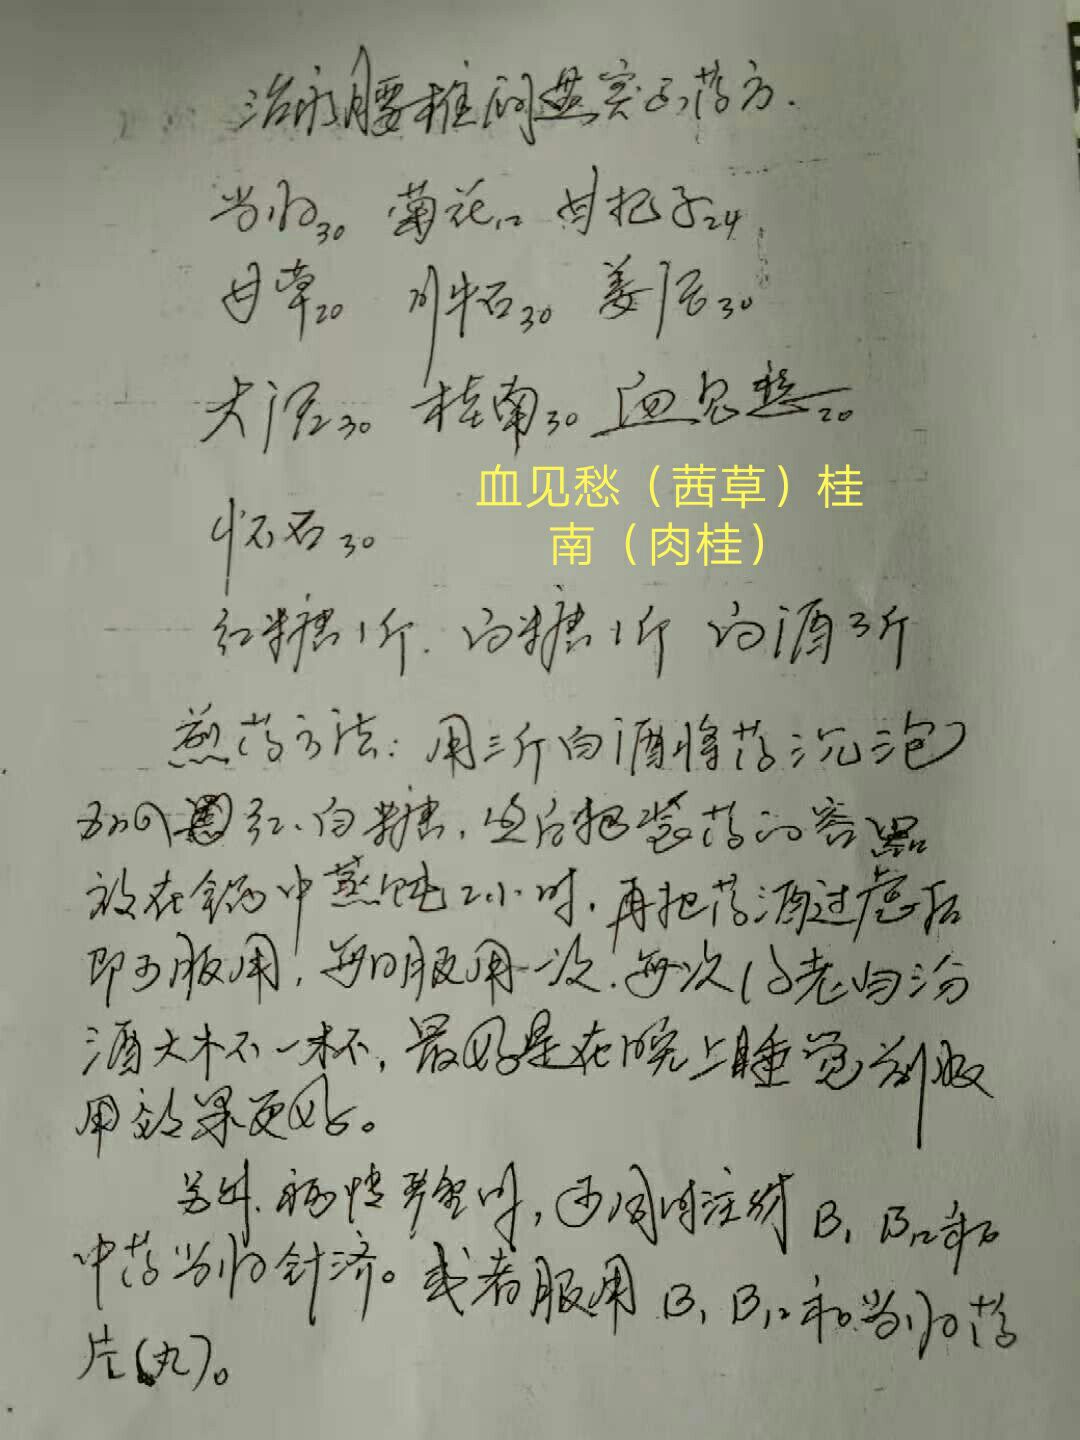 治疗腰椎间盘突出药方.
当归30 菊花12 甘杞子24
甘草20 川牛石30 姜厄30
大活30 桂南30 血见愁20
血见愁（茜草）桂
南（肉桂）
怀石30
红糖1斤. 白糖1斤 白酒3斤
煎药方法：用三斤白酒将药沉泡
加入红、白糖，然后把装药的容器
放在锅中蒸炖2小时，再把药酒过虑后
即可服用，每日服用一次，每次1老白汾
酒大木杯一杯，最好是在晚上睡觉前服
用效果更好。
另外，病情严重时，可同时注射B1 B12和
中药当归针济。或者服用B1 B12和当归药
片(丸)。